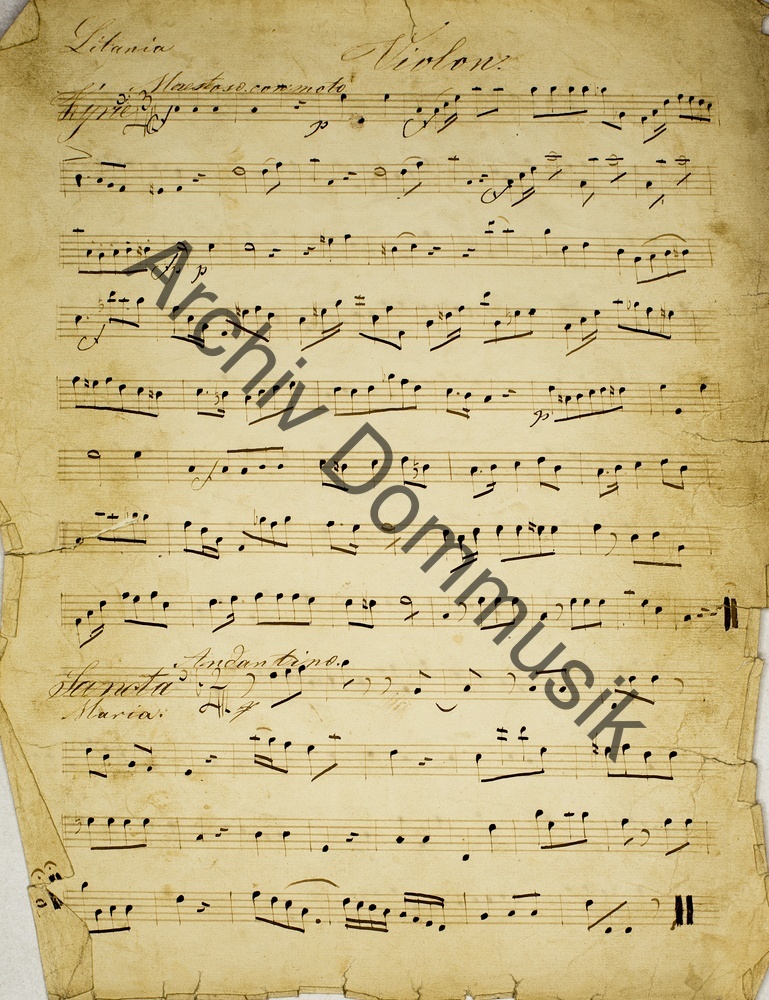 Litania
Violon:
Maestoso con moto
Kyrie
p
p
p
Andantino.
Sancta
Maria:
Archiv Dommusik